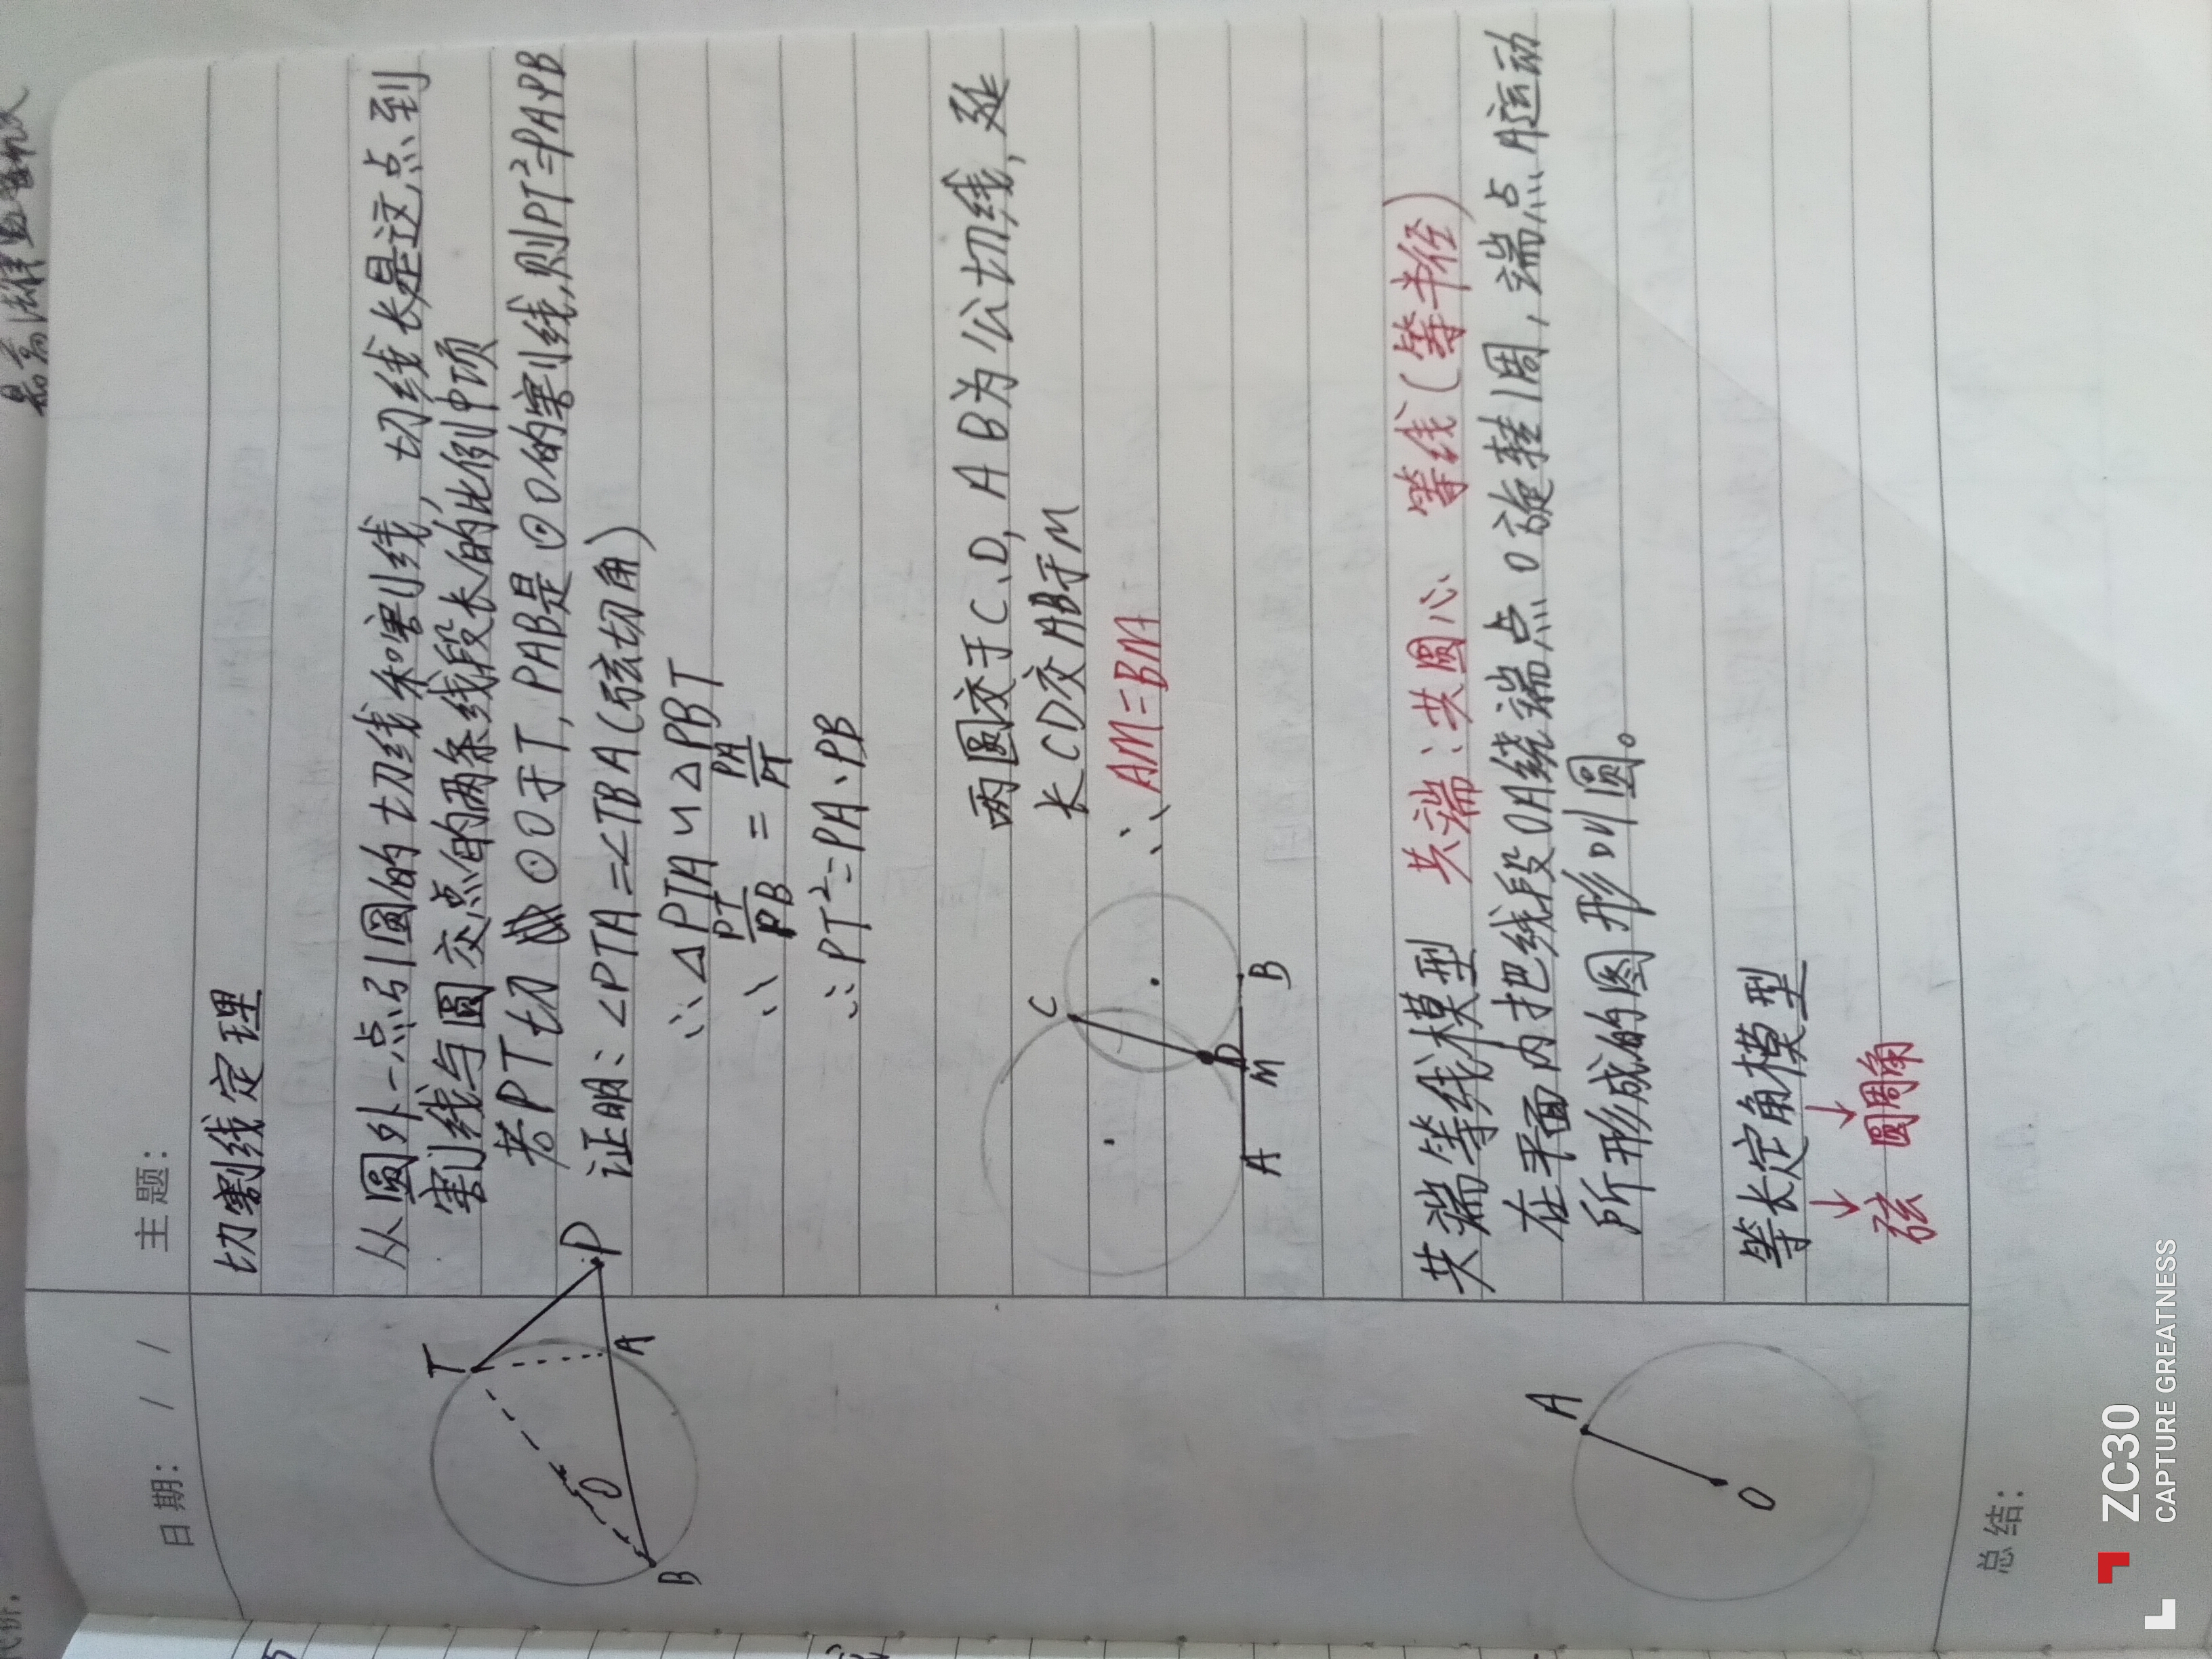 日期： / /
主题：
切割线定理
从圆外一点引圆的切线和割线，切线长是这点到
割线与圆交点的两条线段长的比例中项
若PT切⊙O于T，PAB是⊙O的割线，则PT²=PA·PB
证明：∠PTA=∠TBA（弦切角）
∴△PTA∽△PBT
∴PT/PB=PA/PT
∴PT²=PA、PB
T
P
A
O
B
两圆交于C、D，AB为公切线，延
长CD交AB于M
∴AM=BM
C
D
A M B
共端等线模型 共端：共圆心 等线（等半径）
在平面内把线段OA绕端点O旋转1周，端点A运动
所形成的图形叫圆。
A
O
等长定角模型
↓ ↓
弦 圆周角
总结：
ZC30
CAPTURE GREATNESS